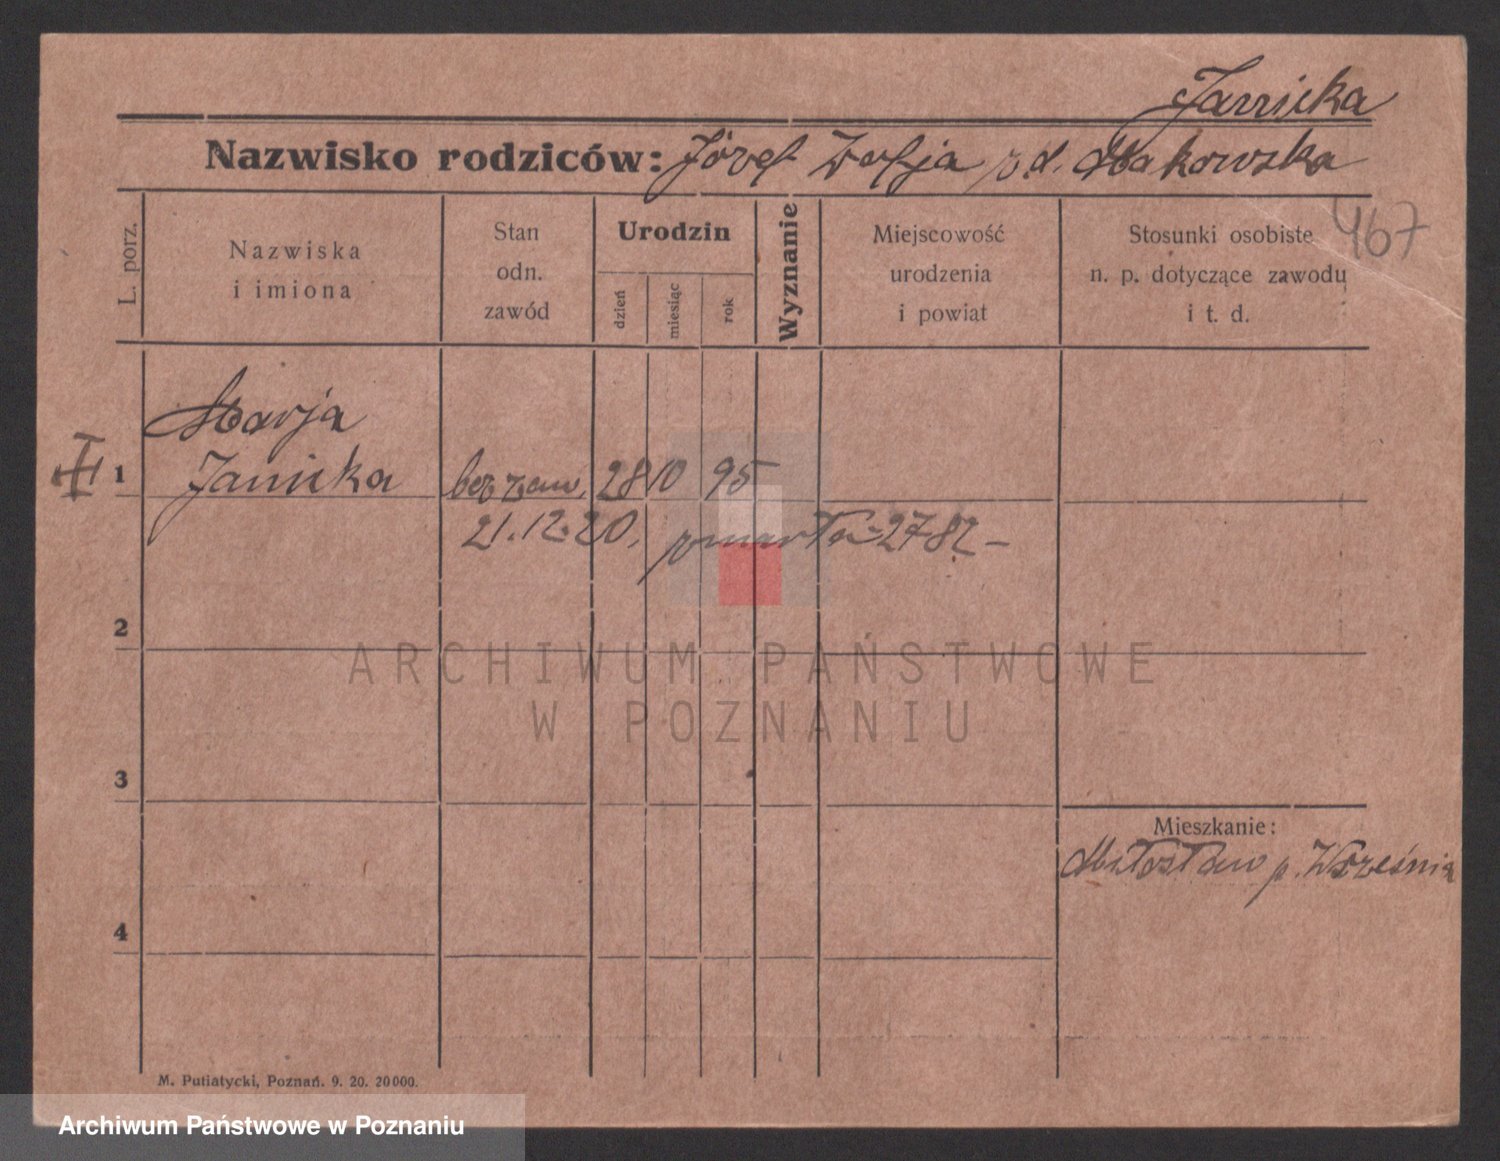 Janicka
Nazwisko rodziców: Józef Zofja z d. Makowska
467
L. porz.
Nazwiska
i imiona
Stan
odn.
zawód
Urodzin
dzień
miesiąc
rok
Wyznanie
Miejscowość
urodzenia
i powiat
Stosunki osobiste
n. p. dotyczące zawodu
i t. d.
Marja
1 Janicka bez zaw. 28 10 95
21.12.20. zmarła - 2782 -
2
ARCHIWUM PAŃSTWOWE
W POZNANIU
3
Mieszkanie:
Miłosław p. Września
4
M. Putiatycki, Poznań. 9. 20. 20000.
Archiwum Państwowe w Poznaniu